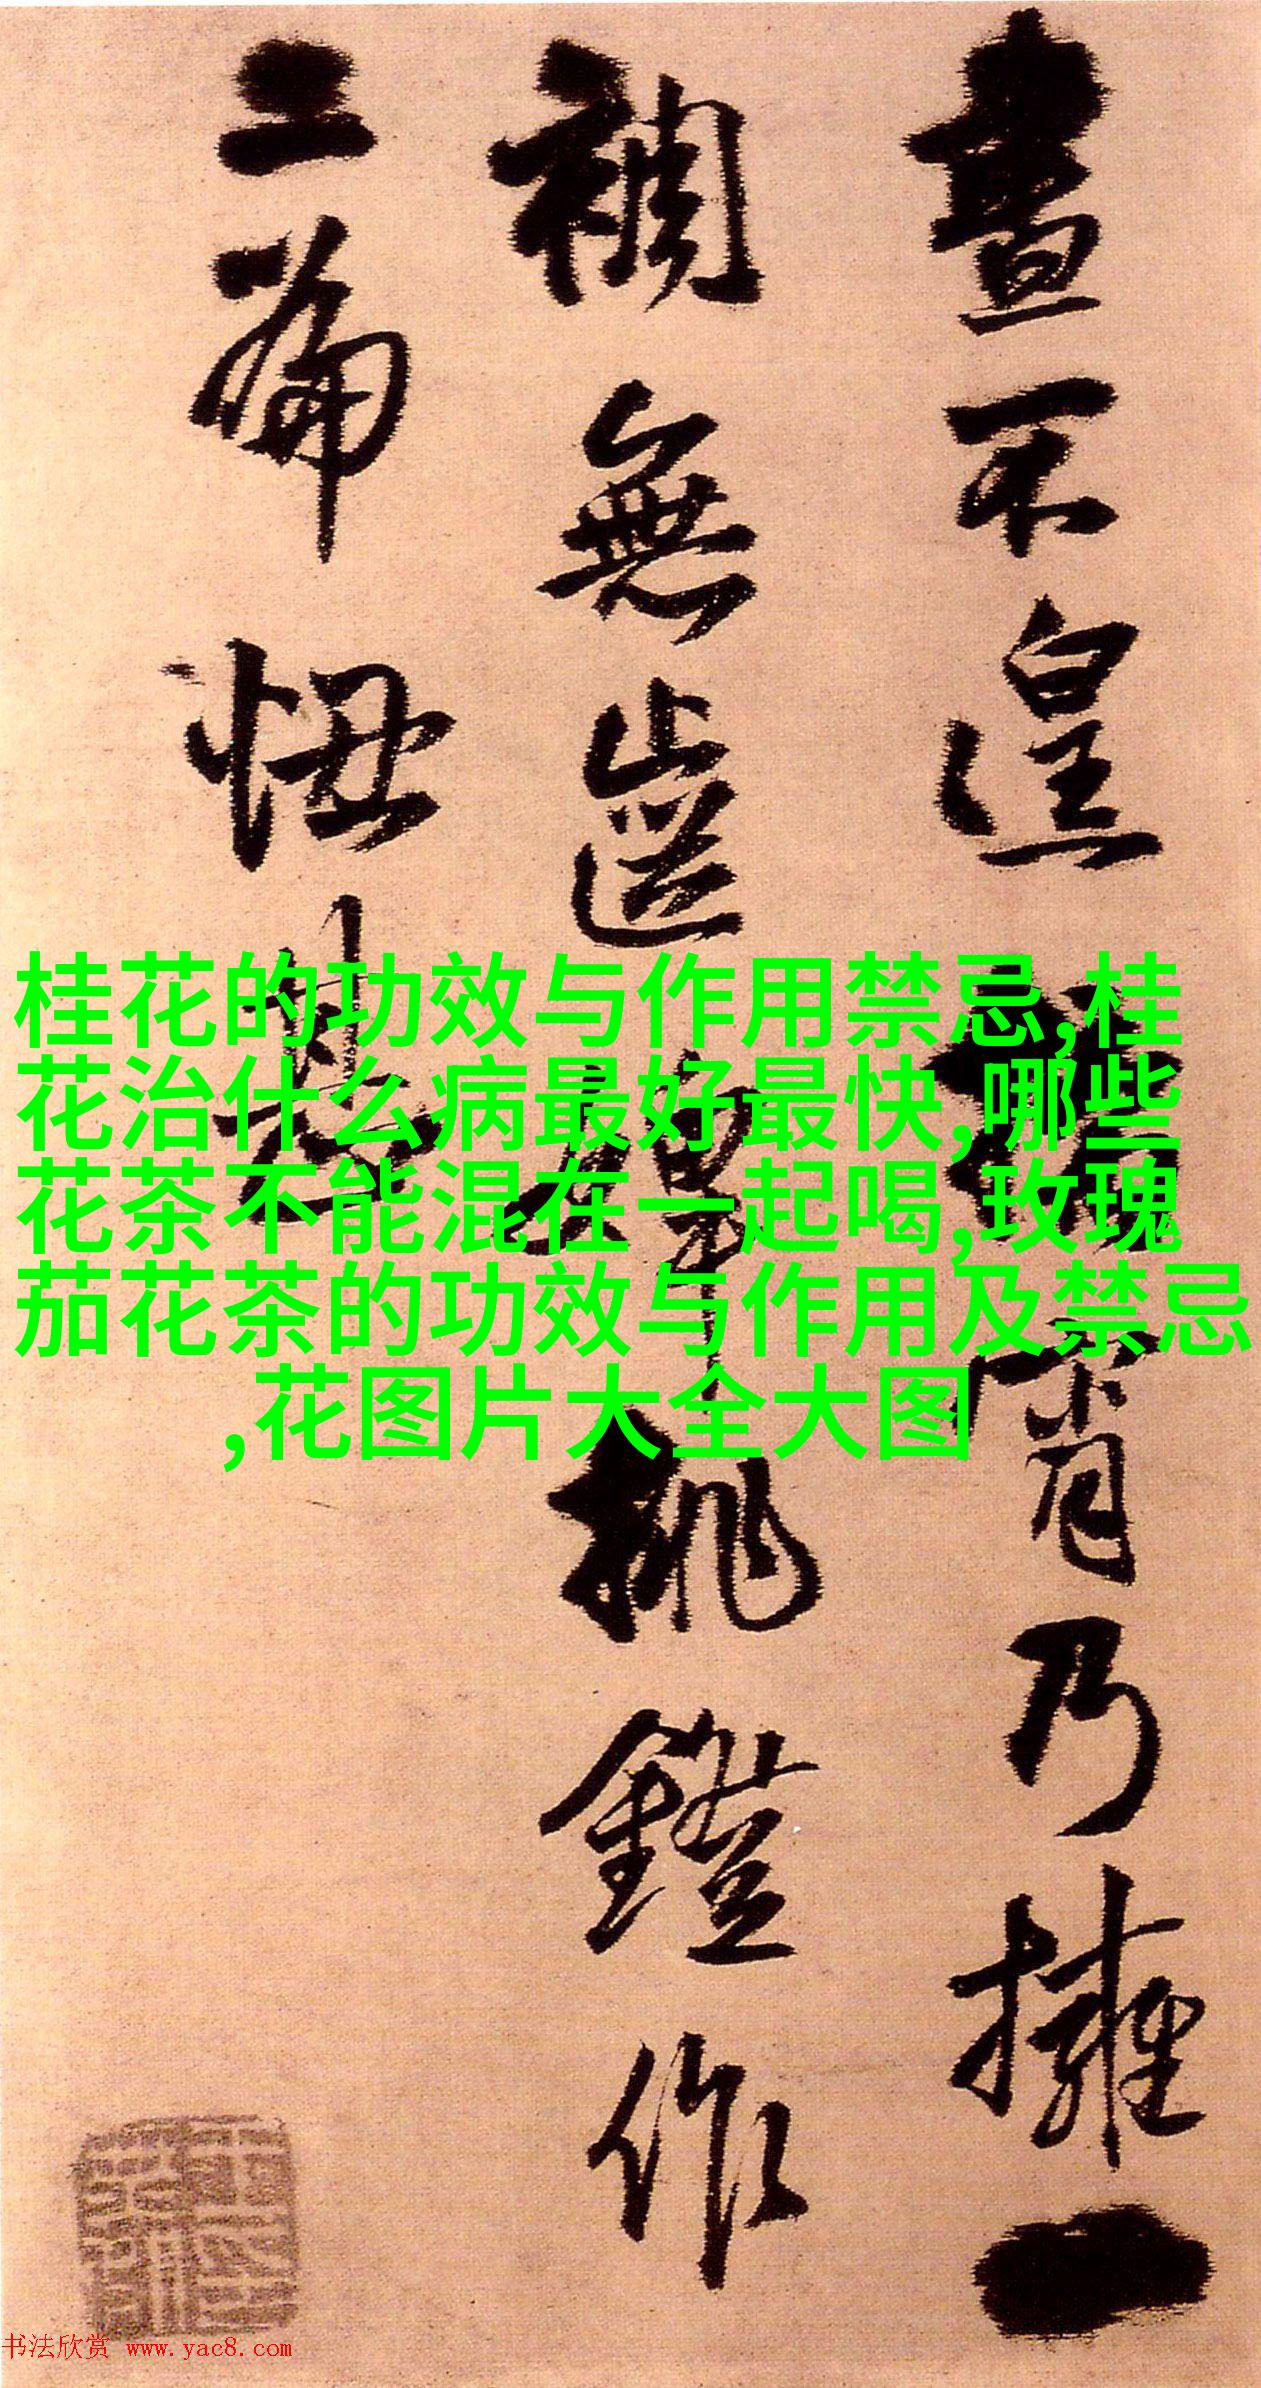 晝不遑宵乃擁一
裯無齒婢挑鐙作
篇
桂花的功效与作用禁忌,桂
花治什么病最好最快,哪些
花茶不能混在一起喝,玫瑰
茄花茶的功效与作用及禁忌
,花图片大全大图
书法欣赏 www.yac8.com